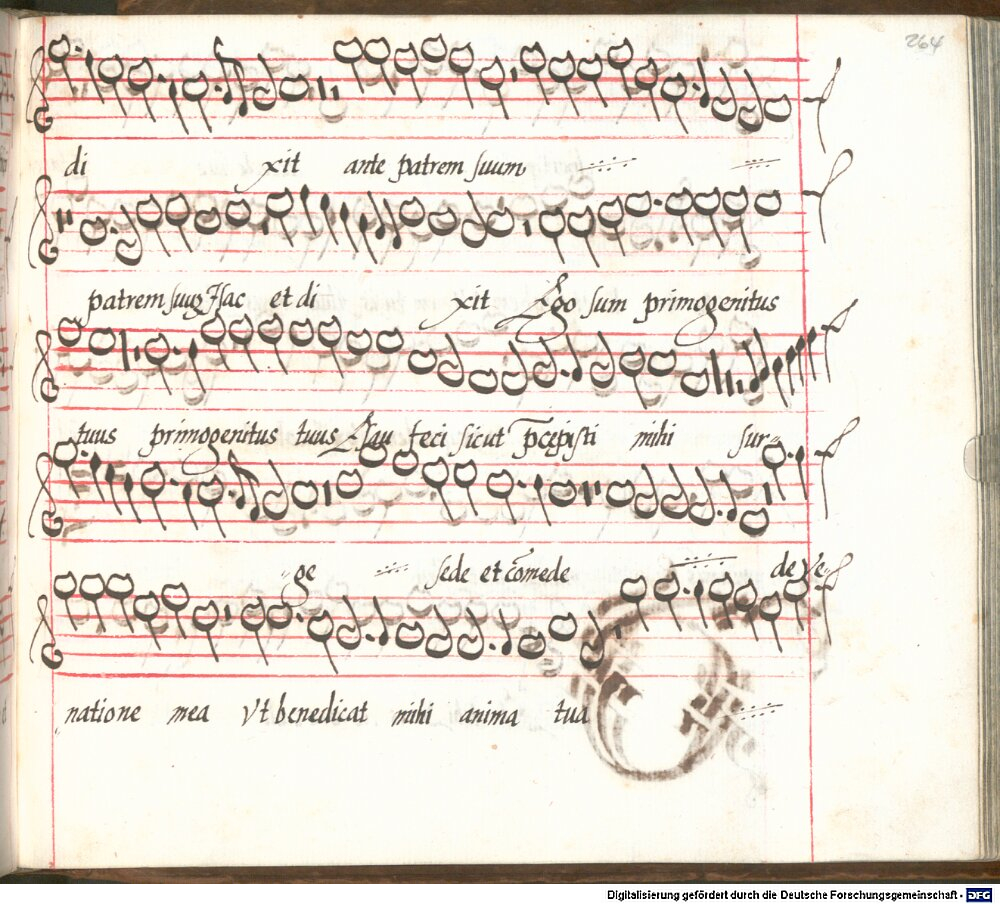 264
di xit ante patrem suum
patrem suuʒ Isac et di xit Ego sum primogenitus
tuus primogenitus tuus Esau feci sicut p̄cępisti mihi sur-
ge sede et comede de Ve-
natione mea Vt benedicat mihi anima tua
Digitalisierung gefördert durch die Deutsche Forschungsgemeinschaft - DFG